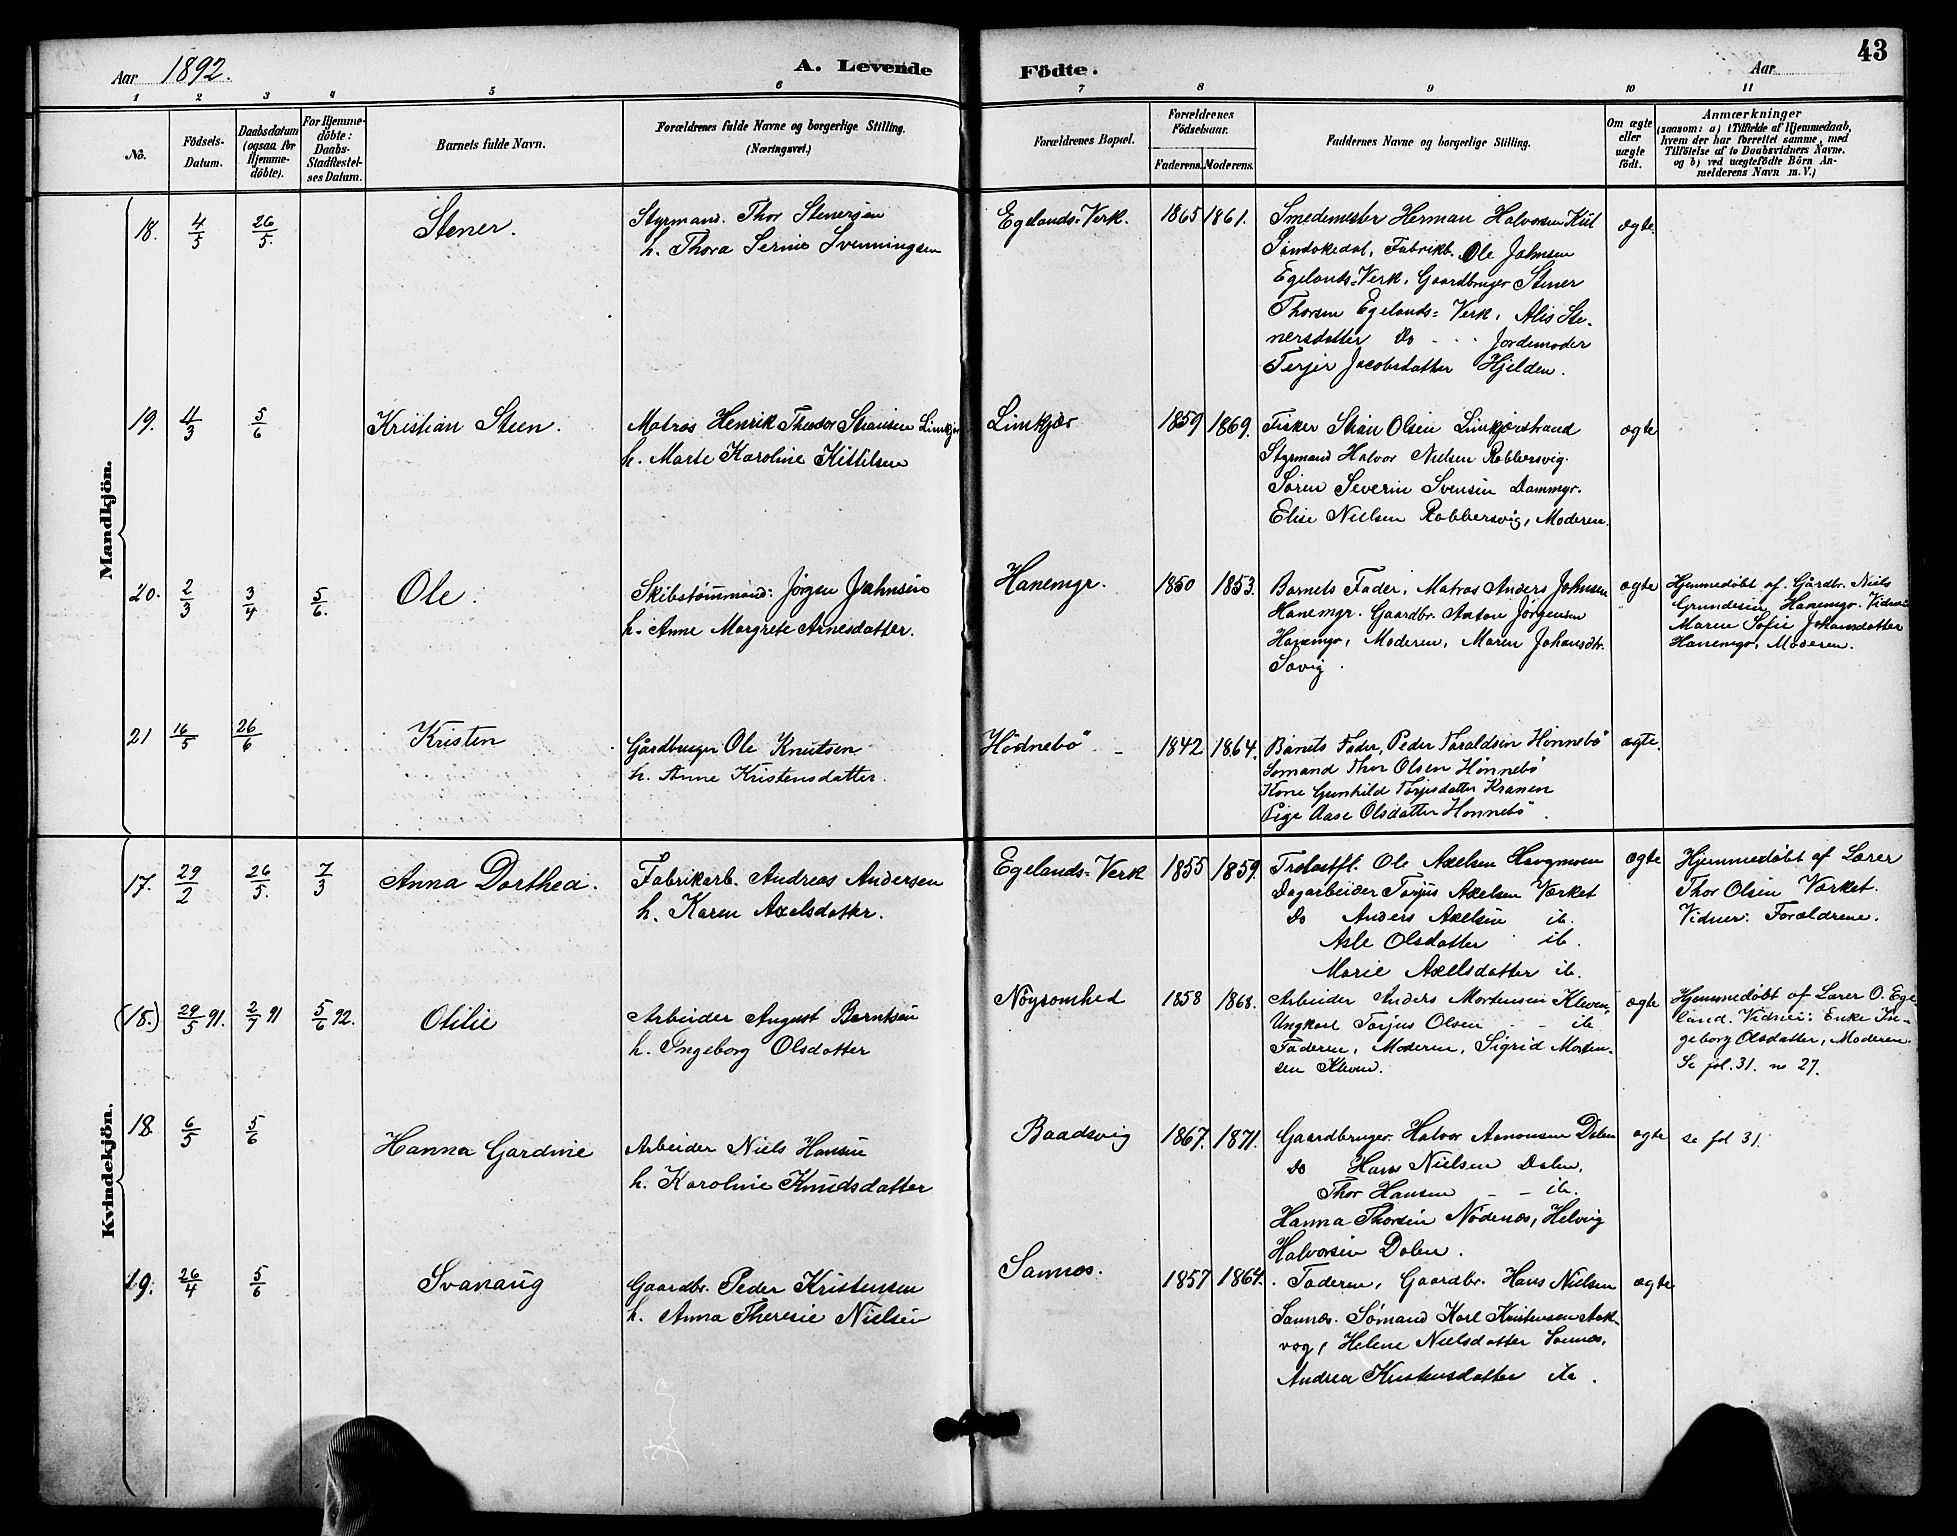 Aar 1892.
A. Levende Födte.
Aar
43
1 2 3 4 5 6 7 8 9 10 11
No.
Födsels-Datum.
Daabsdatum (ogsaa for Hjemme-döbte).
For Hjemme-döbte: Daabs-Stadfæstel-ses Datum.
Barnets fulde Navn.
Forældrenes fulde Navne og borgerlige Stilling. (Næringsvei.)
Forældrenes Bopæl.
Forældrenes Födselsaar.
Faderens. Moderens.
Faddernes Navne og borgerlige Stilling.
Om ægte eller uægte födt.
Anmærkninger
(saasom: a) i Tilfælde af Hjemmedaab, hvem der har forrettet samme, med Tilföielse af to Daabsvidners Navne, og b) ved uægtefödte Börn An-melderens Navn m. V.)
Mandkjön.
18. 4/5 26/5. Stener.
Styrmand. Thor Stenersen
h. Thora Serine Svenningsen
Egelands-Verk. 1865 1861.
Smedemester Herman Halvorsen Kiil
Sandøkedal, Fabrikb. Ole Jahnsen
Egelands-Verk, Gaardbruger Stener
Thorsen Egelands-Verk, Alis Ste-
nersdatter Do Jordemoder
Terjer Jacobsdatter Hjelden.
ægte.
19. 4/3 5/6 Kristian Steen.
Matros Henrik Theodor Stiansen Limkjær
h. Marte Karoline Kittilsen
Limkjær 1859 1869.
Fisker Stian Olsen Limkjærstrand
Styrmand Halvor Nielsen Robbersvig.
Søren Severin Svensen Dammyr.
Elise Nielsen Robbersvig, Moderen.
ægte
20. 2/3 3/4 5/6. Ole.
Skibstømmand: Jørgen Jahnsen
h. Anne Margrete Arnesdatter.
Hanemyr. 1850 1853.
Barnets Fader, Matros Anders Johnsen
Hanemyr. Gaardbr. Anton Jørgensen
Hanemyr, Moderen, Maren Johansdtr.
Søvig.
ægte
Hjemmedøbt af Gårdbr. Niels
Grundesen Hanemyr. Vidner
Maren Sofie Johansdatter
Hanemyr, Moderen.
21 16/5 26/6 Kristen
Gårdbruger Ole Knutsen
h. Anne Kristensdatter.
Hödnebö 1842 1864.
Barnets Fader, Peder Taraldsen Hönnebö
Sømand Thor Olsen Hönnebö
Kone Gunhild Torjusdatter Kranen
Pige Aase Olsdatter Hönnebö.
ægte.
Kvindekjön.
17. 29/2 26/5. 7/3 Anna Dorthea.
Fabrikarb. Andreas Andersen
h. Karen Axelsdatter.
Egelands-Verk 1855 1859.
Trelastfl. Ole Axelsen Haugmoen
Dagarbeider Torjus Axelsen Værket
Do Anders Axelsen ib.
Asle Olsdatter ib.
Marie Axelsdatter ib.
ægte
Hjemmedøbt af Lærer
Thor Olsen Værket.
Vidner: Forældrene.
(18.) 29/5 91. 2/7 91 5/6 92. Otilie
Arbeider August Berntsen
h. Ingeborg Olsdatter
Nøysomhed 1858 1868.
Arbeider Anders Mortensen Kleven,
Ungkarl Torjus Olsen - ib
Faderen, Moderen, Sigrid Morten-
sen Kleven.
ægte
Hjemmedøbt af Lærer O. Ege
land. Vidner: Enke In-
geborg Olsdatter, Moderen.
Se fol. 31. no 27.
18. 6/5 5/6 Hanna Gardine
Arbeider Niels Hansen
h. Karoline Knudsdatter
Baadsvig 1867. 1871.
Gaardbruger. Halvor Aanonsen Dalen
Do Hans Nielsen Dalen,
Thor Hansen - - ib.
Hanna Thorsen Nødenæs, Helvig
Halvorsen Dalen.
ægte
se fol 31.
19. 26/4 5/6 Svanaug
Gaardbr. Peder Kristensen
h. Anna Theresie Nielsen
Sannæs. 1857 1864.
Faderen, Gaardbr. Hans Nielsen
Sannæs. Sømand Karl Kristensen Aak-
vag, Helene Nielsdatter Sannæs,
Andrea Kristensdatter ib.
ægte